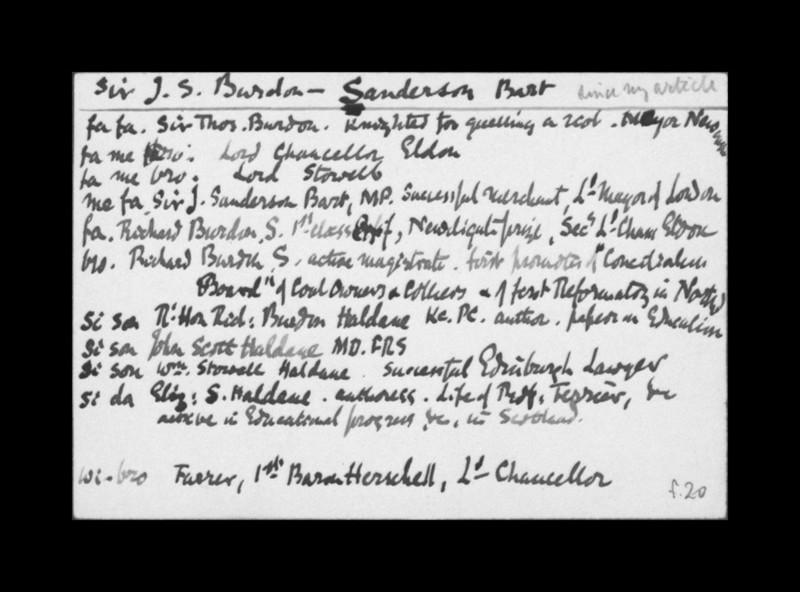 Sir J. S. Burdon – Sanderson Bart since my article
fa fa. Sir Thos. Burdon. Knighted for quelling a riot. Mayor Newcastle
fa me bro: Lord Chancellor Eldon
fa me bro: Lord Stowell
me fa Sir J. Sanderson Bart, MP. Successful merchant, Ld Mayor of London
fa. Richard Burdon S. 1st class Oxf, Newdigate prize, Secy Ld Chanc Eldon
bro. Richard Burdon S. active magistrate. first promoter of "Conciliation
Board" of Coal Owners & Colliers & of first Reformatory in Northd
si son Rt Hon Rich: Burdon Haldane KC. PC. author. papers on Education
si son John Scott Haldane MD. FRS
si son Wm. Stowell Haldane. successful Edinburgh Lawyer
si da Eliz: S. Haldane. authoress. Life of Prof: Ferrier, &c
active in Educational progress &c, in Scotland.
wi-bro Farrer, 1st Baron Herschell, Ld Chancellor
f.20